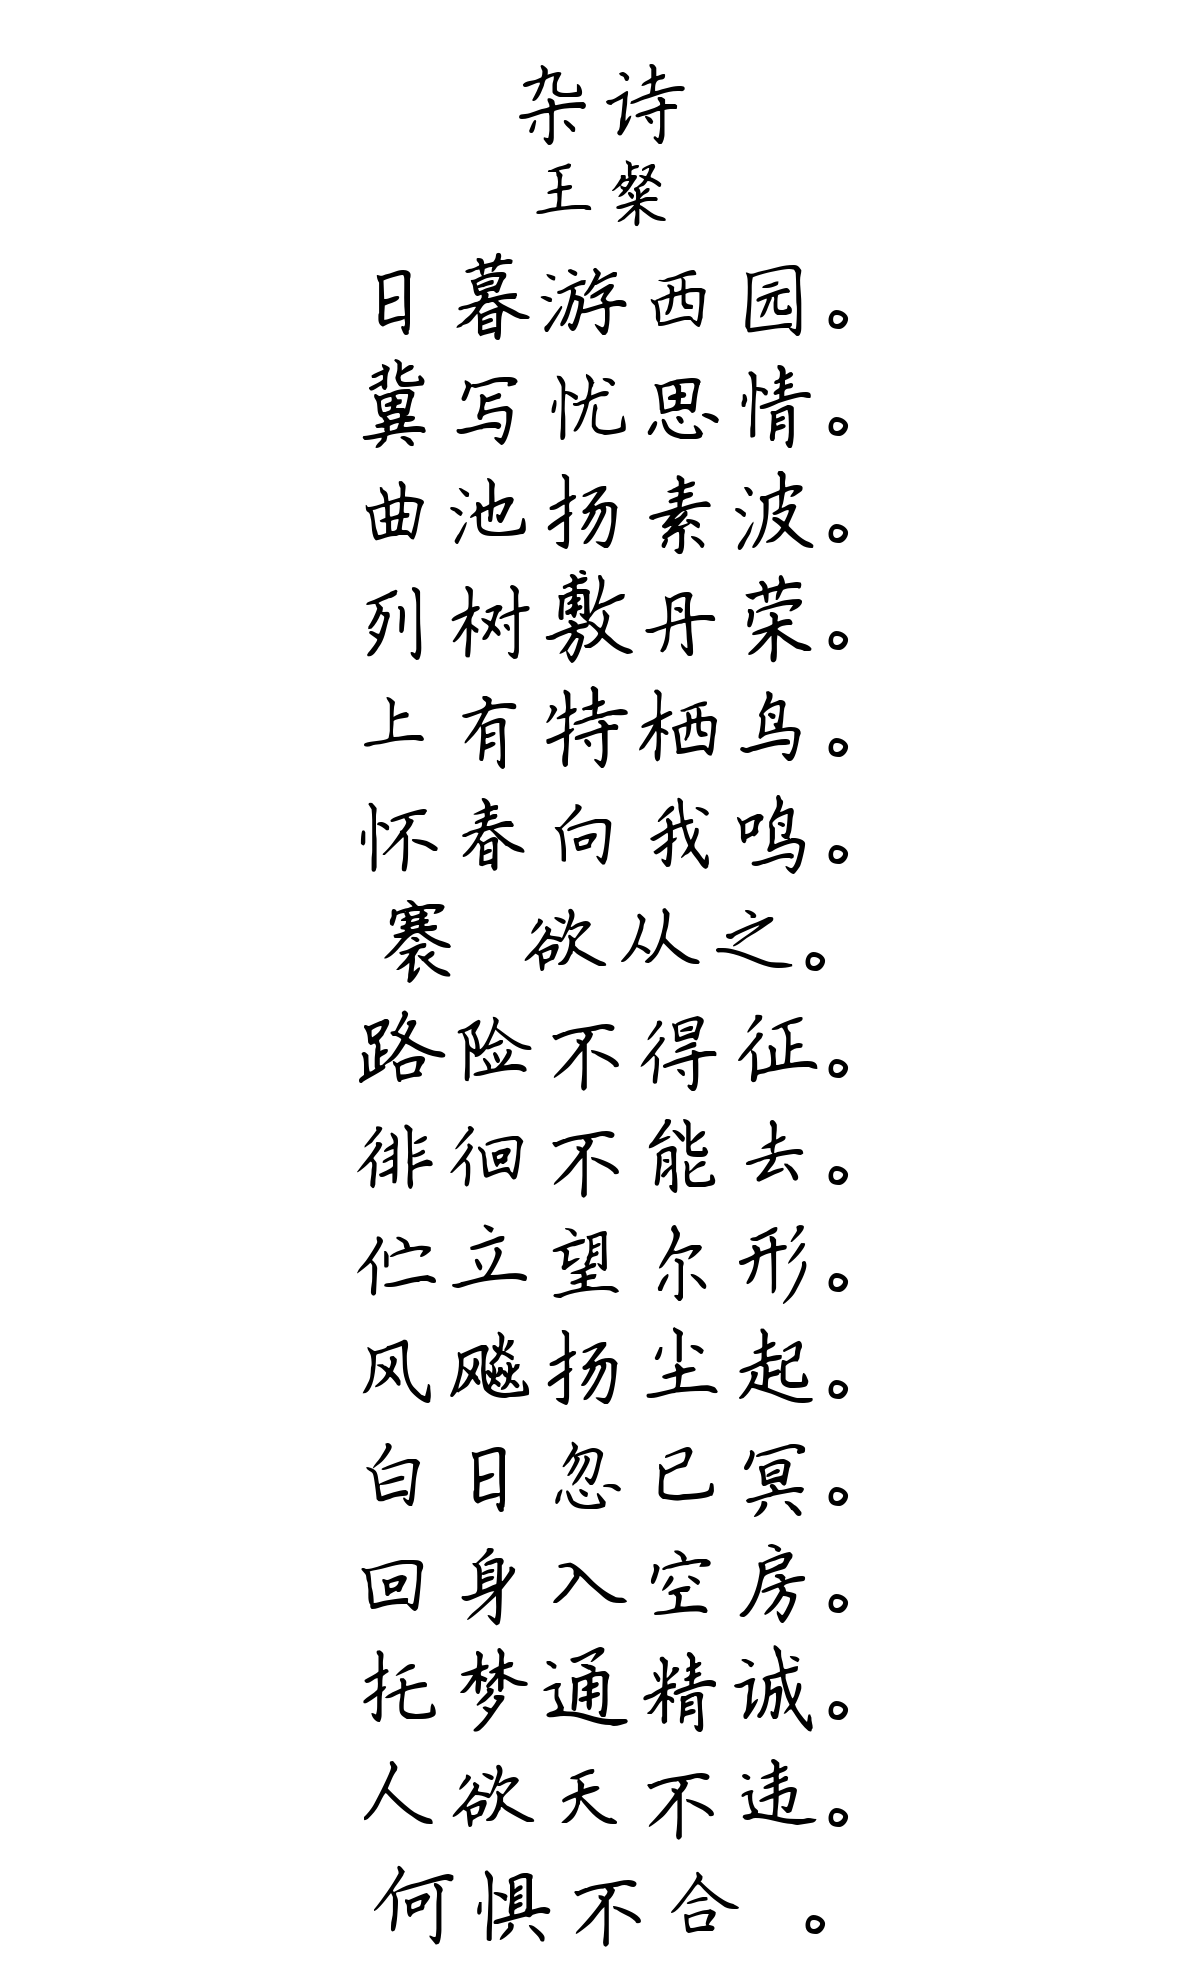 杂诗
王粲
日暮游西园。
冀写忧思情。
曲池扬素波。
列树敷丹荣。
上有特栖鸟。
怀春向我鸣。
褰 欲从之。
路险不得征。
徘徊不能去。
伫立望尔形。
风飚扬尘起。
白日忽已冥。
回身入空房。
托梦通精诚。
人欲天不违。
何惧不合 。